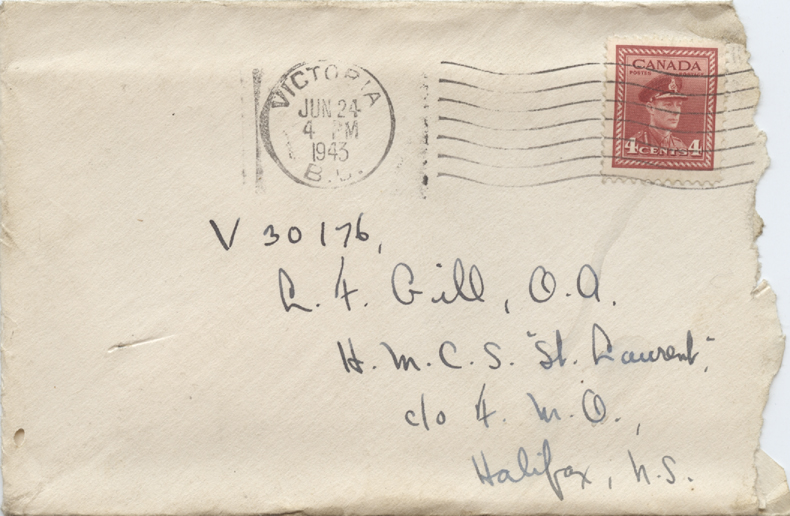 VICTORIA
JUN 24
4 PM
1943
B.C.
CANADA
POSTES POSTAGE
4 CENTS 4
V 30176,
L. F. Gill, O.A.
H.M.C.S. "St. Laurent",
c/o F.M.O.,
Halifax, N.S.